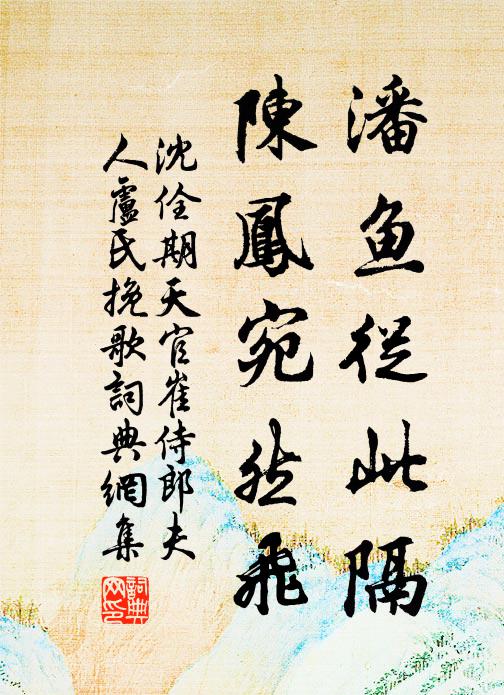 潘魚從此隔
陳鳳宛然飛
沈佺期天官崔侍郎夫
人盧氏挽歌詞典網集
詞典
网印